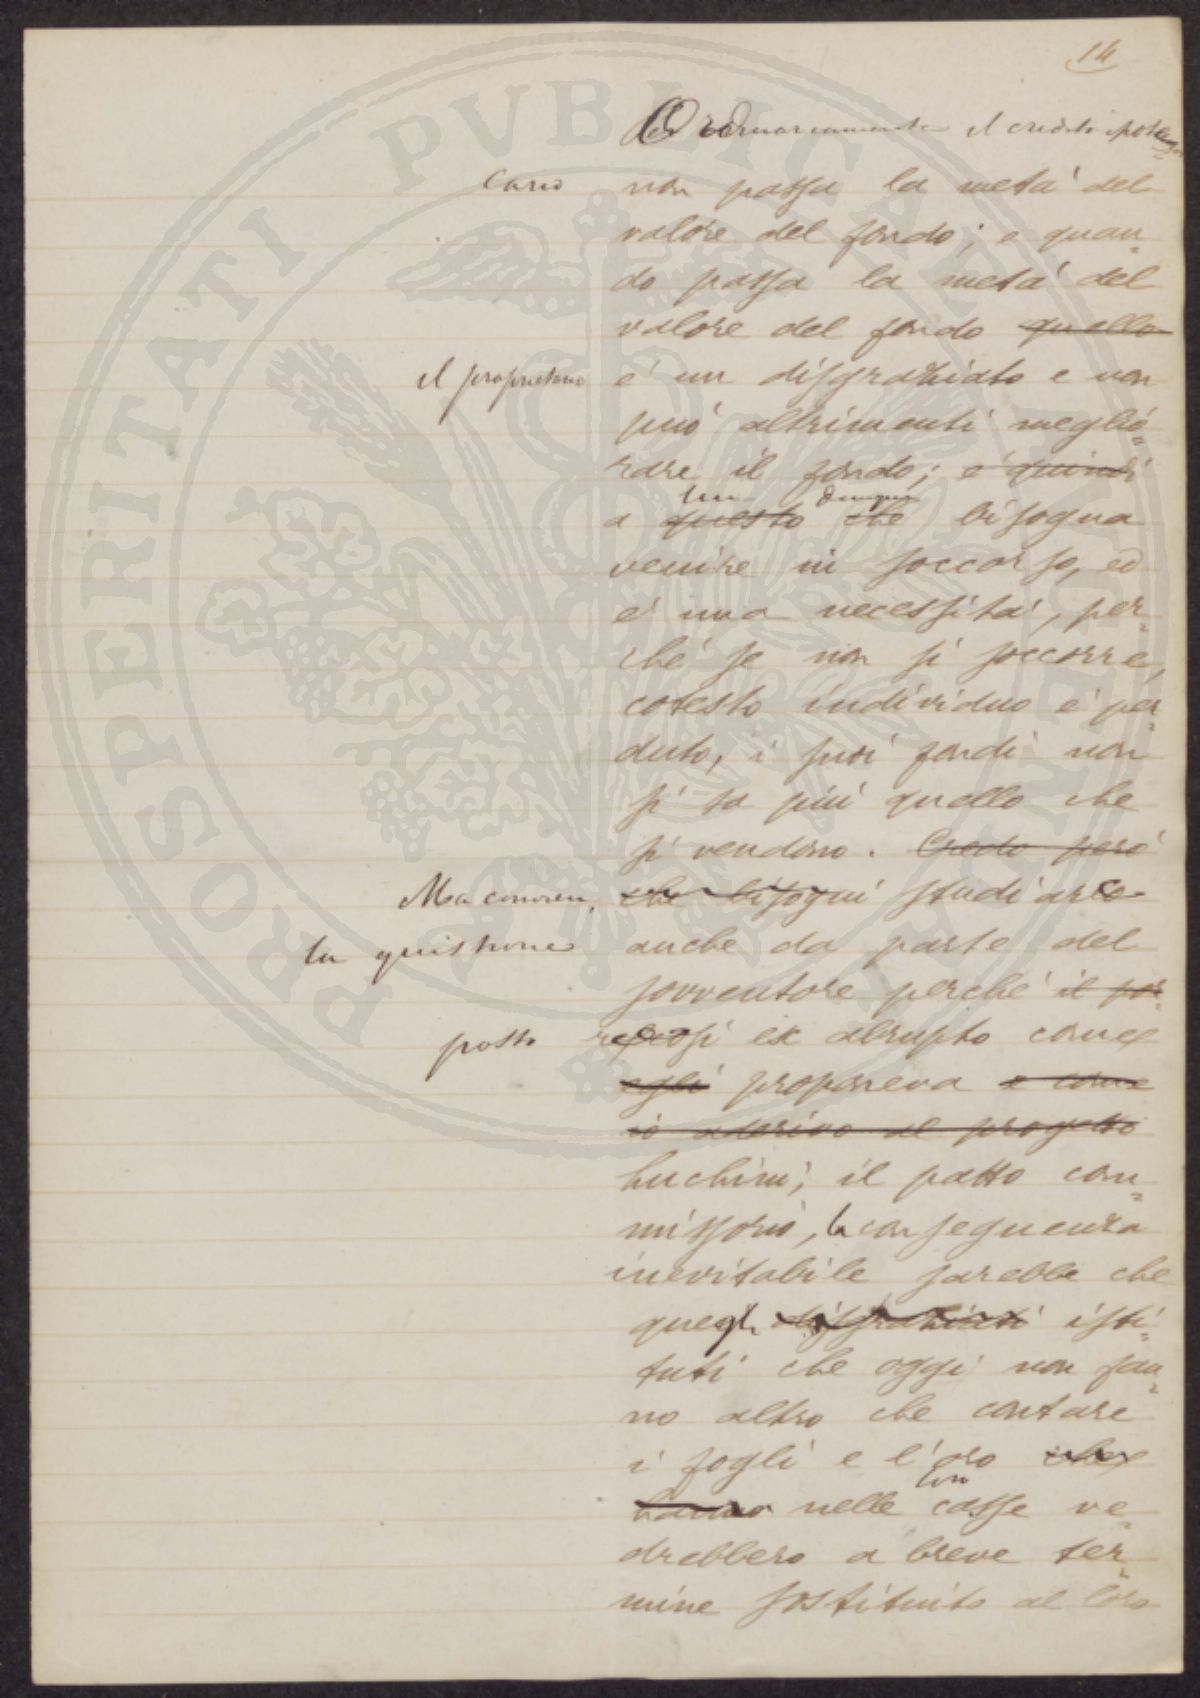 14
Ordinariamente il credito ipote=
cario non passa la metà del
valore del fondo; e quan=
do passa la metà del
valore del fondo quello
il proprietario è un disgraziato e non
può altrimenti meglio=
rare il fondo; e quindi
lui dunque
a questo che bisogna
venire in soccorso, ed
è una necessità, per=
ché se non si soccorre,
cotesto individuo è per=
duto, i suoi fondi non
si sa più quello che
si vendono. Credo però
Ma convien, che bisogni studiare
la quistione anche da parte del
sovventore perché il por=
posto così ex abrupto come
egli proponeva e come
io aderivo al progetto
Luchini, il patto com=
missorio, la conseguenza
inevitabile sarebbe che
quegli disgraziati isti=
tuti che oggi non fan=
no altro che contare
i fogli e l'oro che
loro
hanno nelle casse ve=
drebbero a breve ter=
mine sostituito al loro
PROSPERITATI PVBLICAE